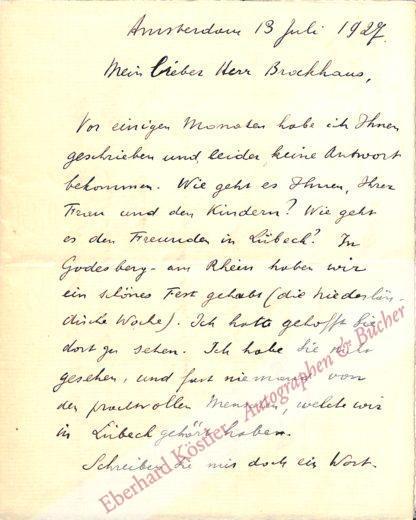 Amsterdam 13 Juli 1927.
Mein lieber Herr Brockhaus,
Vor einigen Monaten habe ich Ihnen
geschrieben und, leider, keine Antwort
bekommen. Wie geht es Ihnen, Ihrer
Frau und den Kindern? Wie geht
es den Freunden in Lübeck? In
Godesberg - am Rhein haben wir
ein schönes Fest gehabt (die Niederlän-
dische Woche). Ich hatte gehofft Sie
dort zu sehen. Ich habe Sie nicht
gesehen, und fast niemand von
den prachtvollen Menschen, welche wir
in Lübeck gehört haben.
Schreiben Sie mir doch ein Wort.
Eberhard Köstler Autographen & Bücher